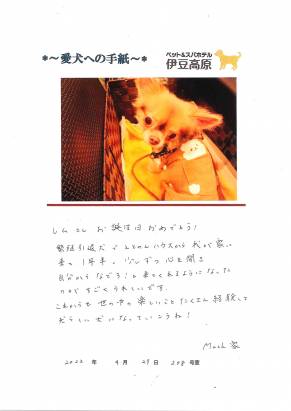 *~愛犬への手紙~*
ペット&スパホテル
伊豆高原
しんさん お誕生日おめでとう!
緊急引取犬でとんのんハウスから我が家に
来て1年半。少しずつ心を開き
自分からなでろ!と来てくれるようになった
のはすごくうれしいです。
これからも世の中の楽しいことたくさん経験して
犬らしい犬になっていこうね!
Mash家
2022 年 4 月 29 日 208 号室